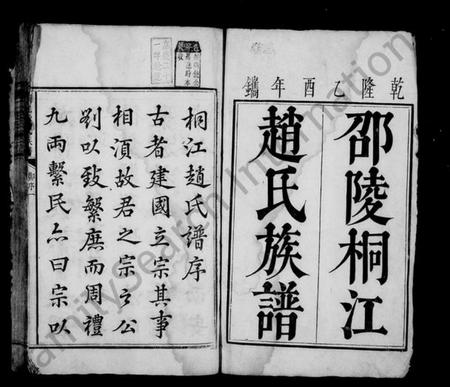 乾隆乙酉年鐫
邵陵桐江
趙氏族譜
桐江趙氏譜序
古者建國立宗其事
相湏故君之宗之公
劉以致繁庶而周禮
九兩繫民亦曰宗以
FamilySearch International